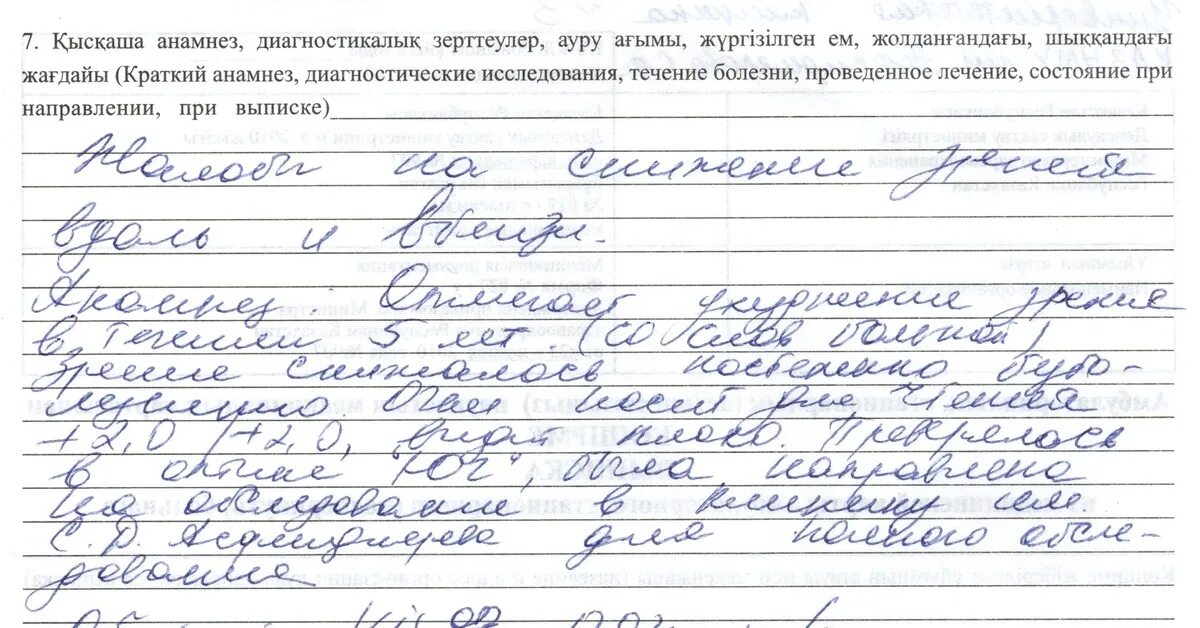 7. Қысқаша анамнез, диагностикалық зерттеулер, ауру ағымы, жүргізілген ем, жолданғандағы, шыққандағы
жағдайы (Краткий анамнез, диагностические исследования, течение болезни, проведенное лечение, состояние при
направлении, при выписке)
Жалобы на снижение зрения
вдаль и вблизи.
Анамнез. Отмечает ухудшение зрения
в течении 5 лет (со слов больной)
Зрение снижалось постепенно
носит для
+2,0 /+2,0, видит плохо. Проверялась
в оптике "Юг", была направлена
на обследование в клинику им.
С.Д. Асфендиярова для полного обсле-
дования